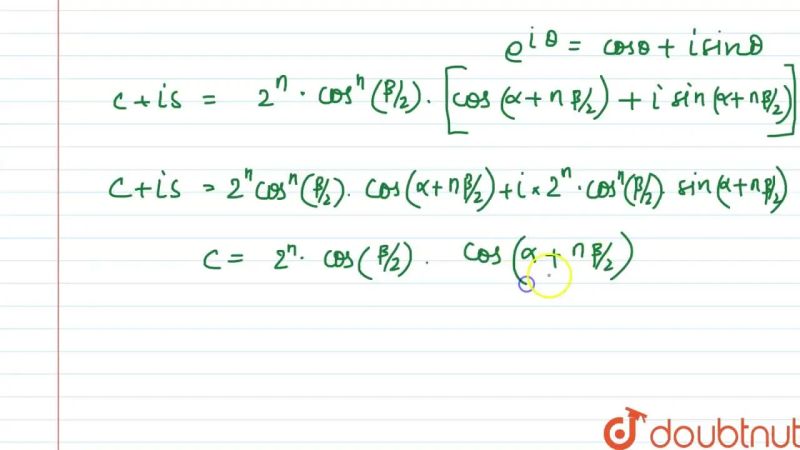 e^{iθ} = cosθ + i sinθ
C + is = 2^n · cos^n (β/2) · [cos (α + n β/2) + i sin (α + nβ/2)]
C + is = 2^n cos^n (β/2) · cos (α + nβ/2) + i × 2^n · cos^n (β/2) · sin (α + nβ/2)
C = 2^n · cos (β/2) · cos (α + n β/2)
doubtnut